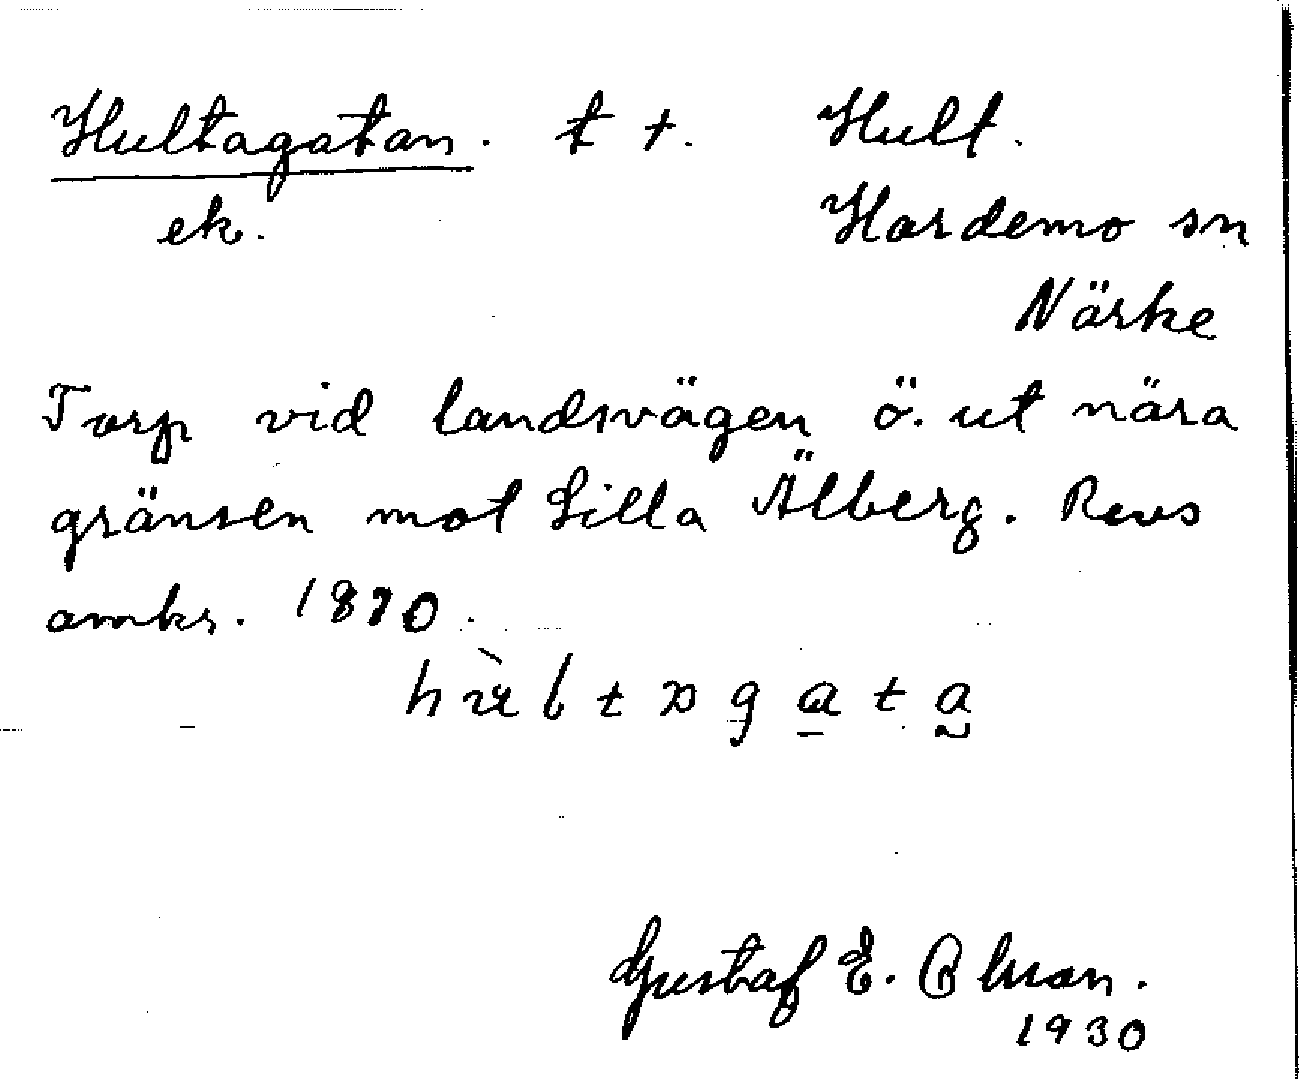 Hultagatan. t +. Hult.
ek. Hardemo sn
Närke
Torp vid landsvägen ö. ut nära
gränsen mot Lilla Älberg. Revs
omkr. 1870.
Gustaf E. Olsson.
1930